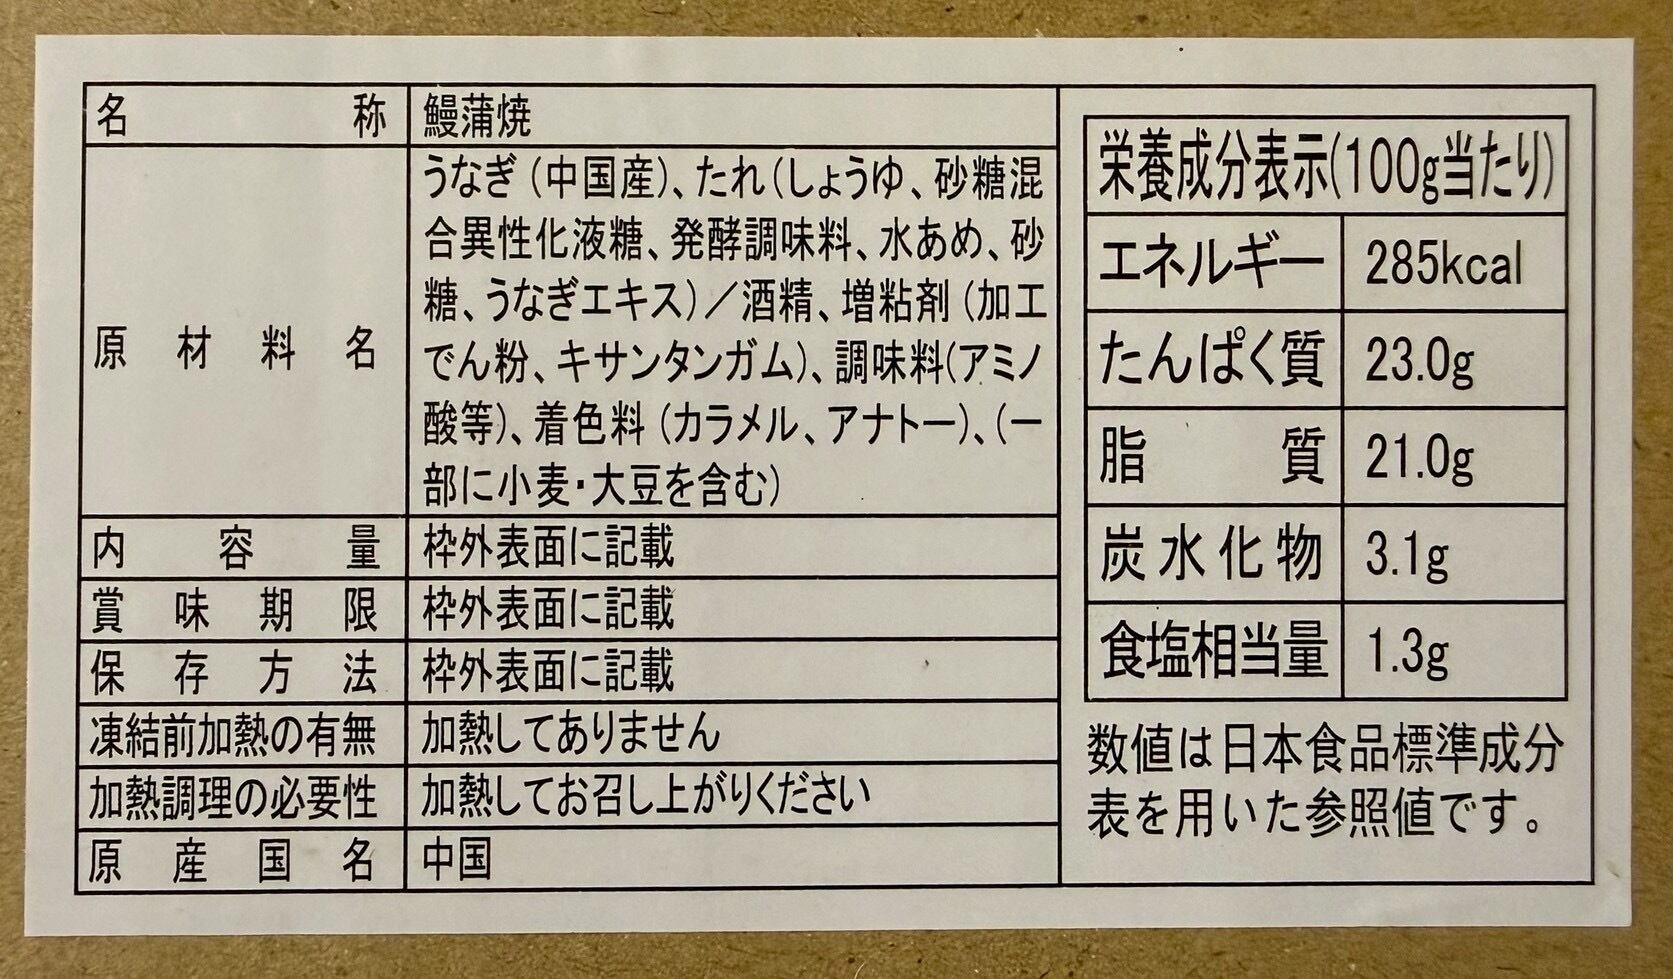 名称 鰻蒲焼
原材料名 うなぎ(中国産)、たれ(しょうゆ、砂糖混
合異性化液糖、発酵調味料、水あめ、砂
糖、うなぎエキス)／酒精、増粘剤(加工
でん粉、キサンタンガム)、調味料(アミノ
酸等)、着色料(カラメル、アナトー)、(一
部に小麦・大豆を含む)
内容量 枠外表面に記載
賞味期限 枠外表面に記載
保存方法 枠外表面に記載
凍結前加熱の有無 加熱してありません
加熱調理の必要性 加熱してお召し上がりください
原産国名 中国
栄養成分表示(100g当たり)
エネルギー 285kcal
たんぱく質 23.0g
脂質 21.0g
炭水化物 3.1g
食塩相当量 1.3g
数値は日本食品標準成分
表を用いた参照値です。